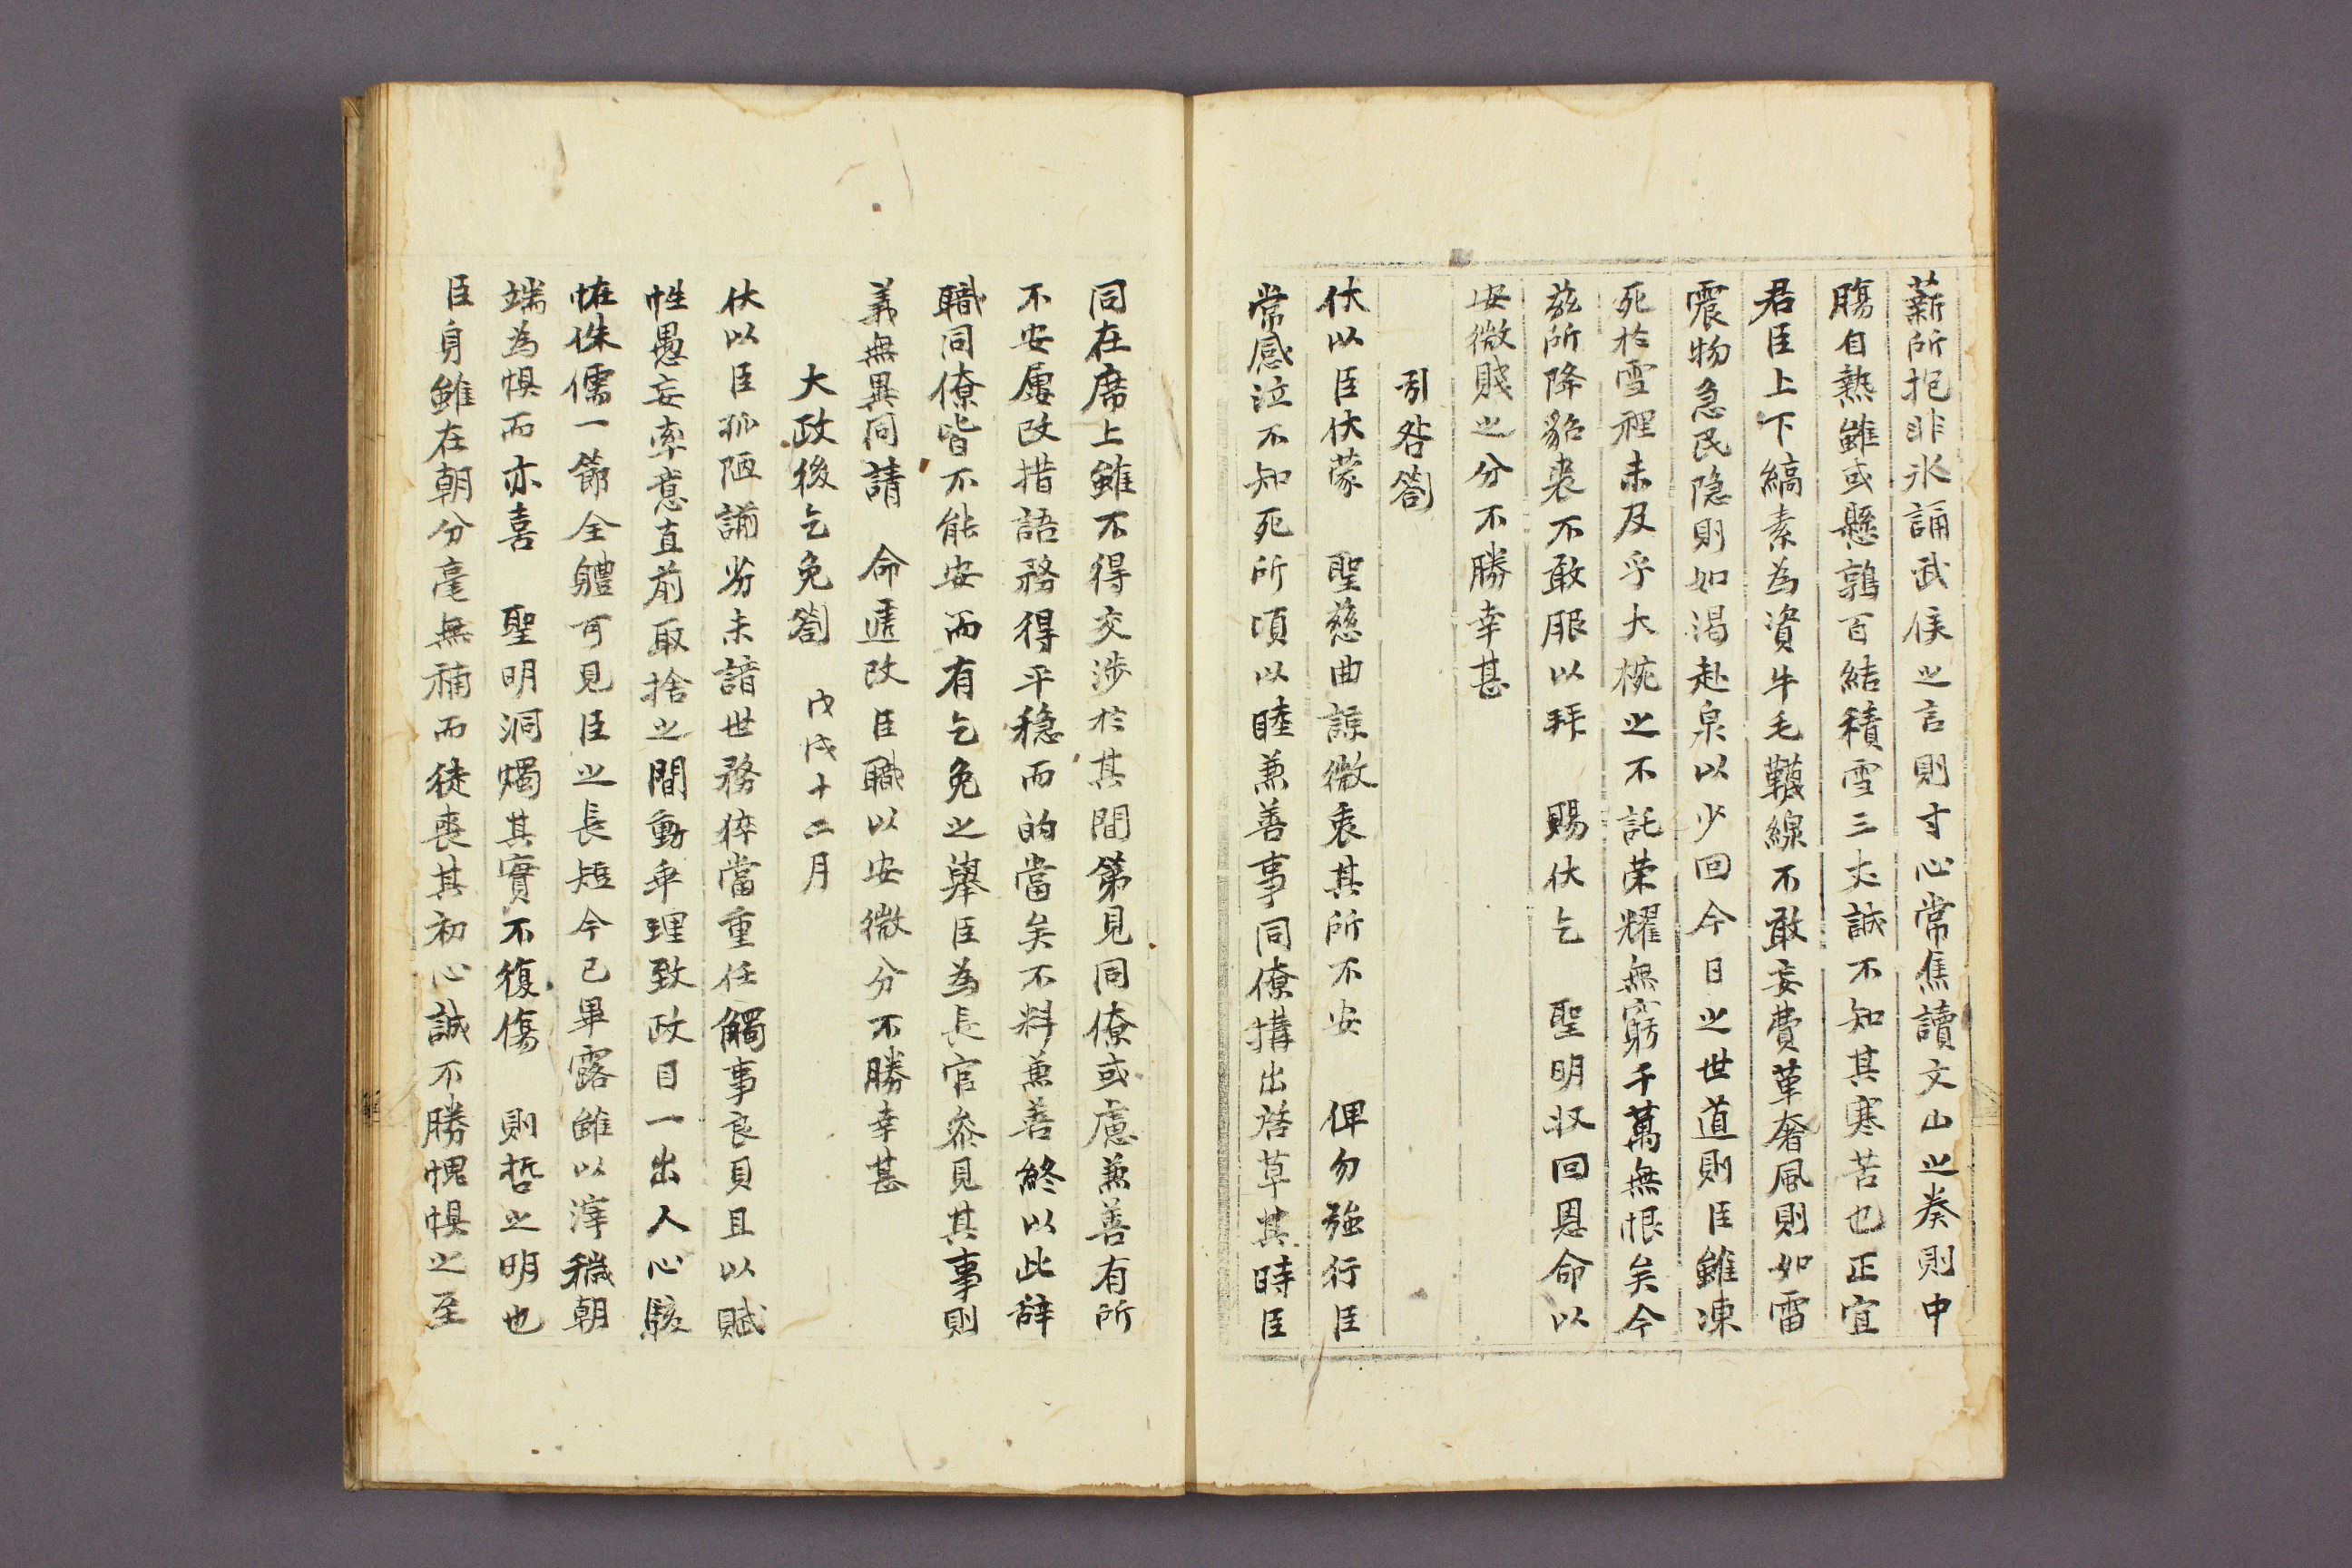 薪所抱非氷誦武侯之言則寸心常焦讀文山之奏則中
膓自熱雖或懸鶉百結積雪三丈誠不知其寒苦也正宜
君臣上下縞素為資牛毛韈線不敢妄費革奢風則如雷
震物急民隐則如渴赴泉以少回今日之世道則臣雖凍
死於雪裡未及乎大椀之不託荣耀無窮千萬無恨矣今
玆所降貂裘不敢服以拜 賜伏乞 聖明収回恩命以
安微賤之分不勝幸甚
引咎箚
伏以臣伏蒙 聖慈曲諒微衷其所不安 俾勿強行臣
常感泣不知死所頃以睦兼善事同僚搆出啓草其時臣
同在席上雖不得交渉於其間第見同僚或慮兼善有所
不安屢改措語務得平穏而的當矣不料兼善終以此辞
職同僚皆不能安而有乞免之擧臣為長官叅見其事則
義無異同請 命遞改臣職以安微分不勝幸甚
大政後乞免箚 戊戌十二月
伏以臣孤陋譾劣未諳世務猝當重任觸事良貝且以賦
性愚妄率意直前取捨之間動乖理致政目一出人心駭
恠侏儒一節全軆可見臣之長短今已畢露雖以滓穢朝
端為惧而亦喜 聖明洞燭其實不復傷 則哲之明也
臣身雖在朝分毫無補而徒喪其初心誠不勝愧惧之至